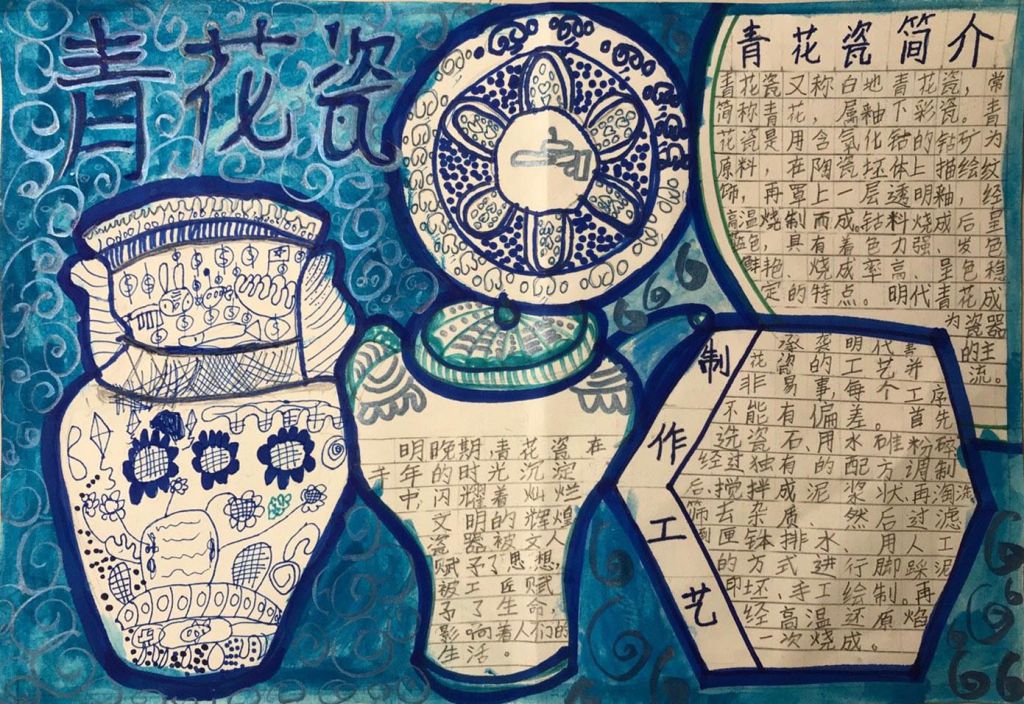 青花瓷
青花瓷简介
青花瓷又称白地青花瓷，常
简称青花，属釉下彩瓷。青
花瓷是用含氧化钴的钴矿为
原料，在陶瓷坯体上描绘纹
饰，再罩上一层透明釉，经
高温烧制而成。钴料烧成后呈
蓝色，具有着色力强、发色
鲜艳、烧成率高、呈色稳
定的特点。明代青花成
为瓷器
的主
流。
明晚期，青花瓷在
千年的时光沉淀
中，闪耀着灿烂
文明的辉煌
瓷器被文人
赋予了思想，
被工匠赋
予了生命，
影响着人们的
生活。
制作工艺
承袭明代青
花瓷的工艺并
非易事，每个工序
不能有偏差。首先
选瓷石，用水碓粉碎
经过独有的配方调制
后，搅拌成泥浆状，再淘洗
筛去杂质、然后过滤
匣钵排水、用人工
的方式进行脚踩泥
印坯、手工绘制。再
经高温还原焰
一次烧成。